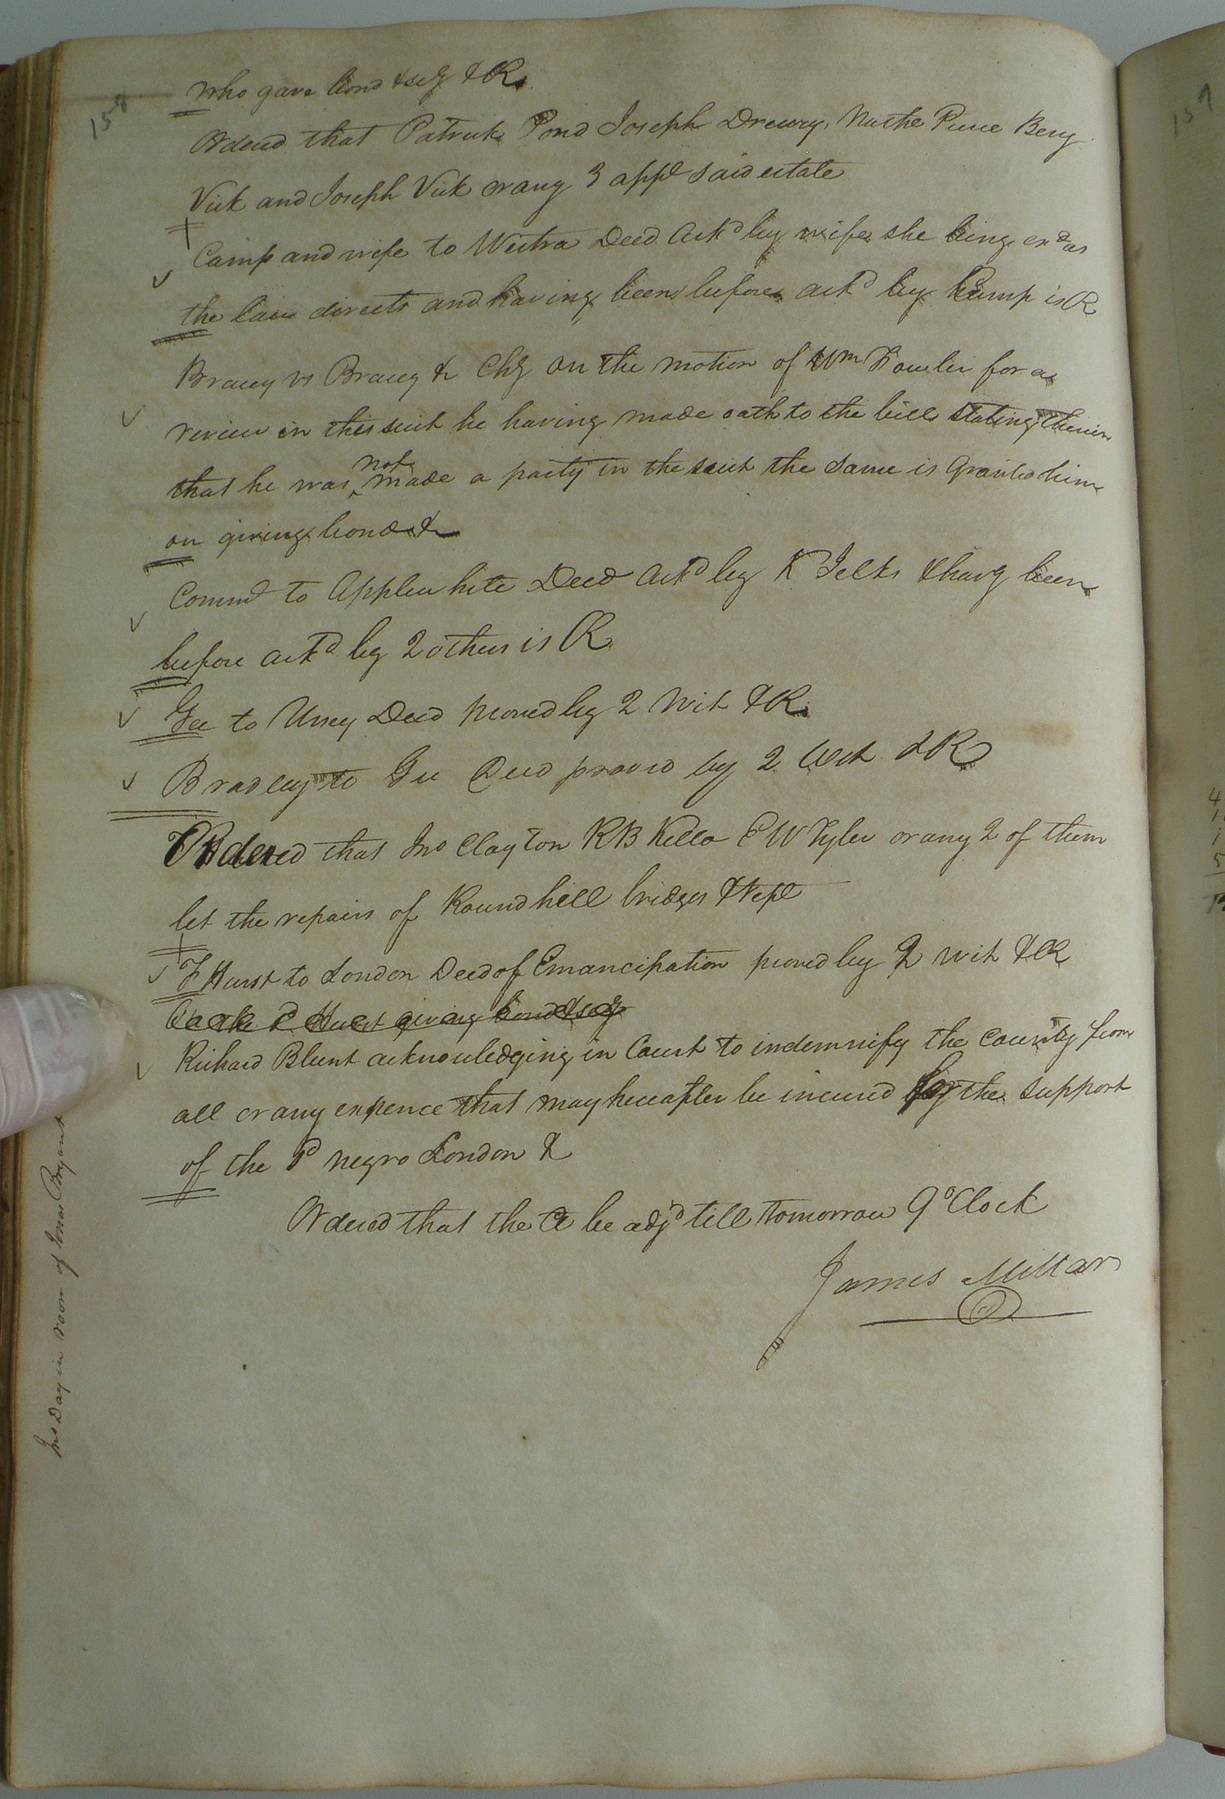 158
who gave bond & secy & R.
Ordered that Patrick Pond Joseph Drewry, Nathl Pierce Benj
Vick and Joseph Vick or any 3 appe said estate
Camp and wife to Deed Ackd by wife she being exd as
the law directs and having been before ackd by Camp is R
Bracy vs Bracy &c Chy on the motion of Wm Fowler for a
review in this suit he having made oath to the bill stating therein
that he was not made a party in the suit the same is Granted him
on giving bond &c
Commrs to Applewhite Deed Ackd by K Jelks & havg been
before ackd by 2 others is R
Gee to Urrey Deed proved by 2 Wit & R.
Bradley to Gee Deed proved by 2 Wit & R
Ordered that Jno Clayton RB Kello E W Tyler or any 2 of them
let the repairs of Roundhill bridges & Rept
F Hurst to London Deed of Emancipation proved by 2 wit & R
Hurst giving bond & secy
Richard Blunt acknowledging in Court to indemnify the county from
all or any expence that may hereafter be incured for the support
of the sd negro London &
Ordered that the Ct be adjd till tomorrow 9 oClock
James Millar
Jno Day in room of Bryant
159